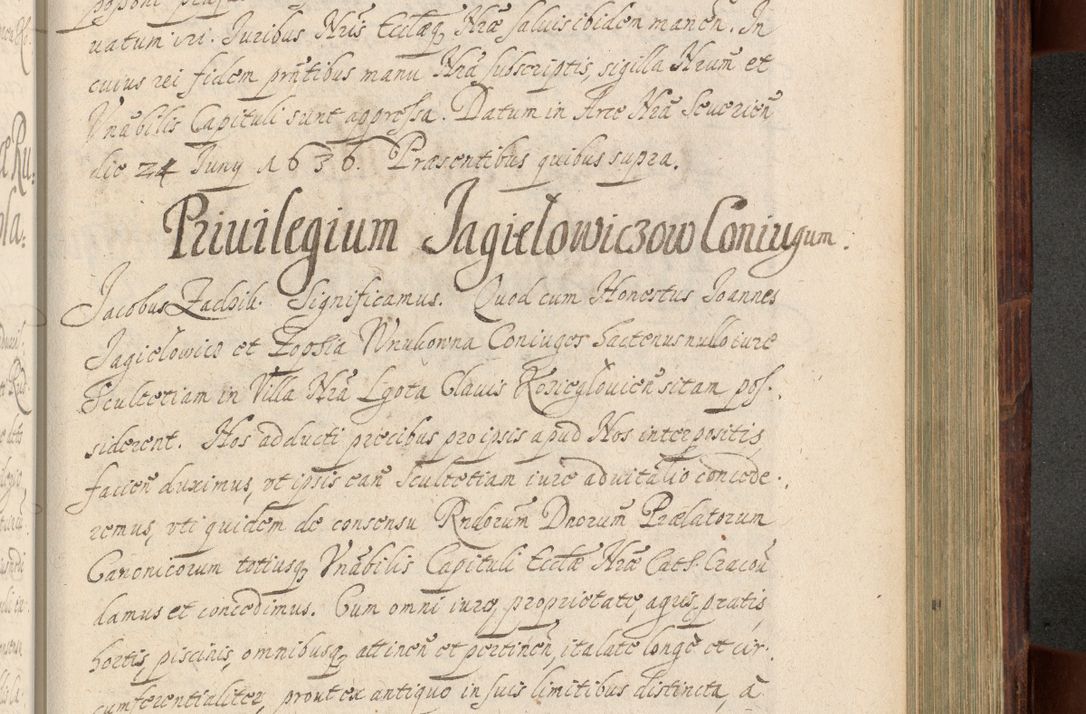 uatum iri. Juribus Nris Ecclæq₃ Nræ saluis ibidem manen̄. In
cuius rei fidem prñtibus manu Nrā subscriptis, sigilla Nrum̄ et
Vnābilis Capituli sunt appressa. Datum in Arce Nrā Seuerien̄
die 24 Juny 1636. Præsentibus quibus supra.
Priuilegium Jagiełowiczow Coniugum.
Jacobus Zadzik. Significamus. Quod cum Honestus Joannes
Jagielowicz et Zophia Wnukowna Coniuges hactenus nullo iure
Scultetiam in Villa Nrā Lgota Clauis Kozieglouien̄ sitam pos-
siderent. Nos adducti precibus pro ipsis apud Nos interpositis,
facien̄ duximus, vt ipsis ean̄ Scultetiam iure aduitalio concede-
remus, vti quidem de consensu Rndorum Dnorum Prælatorum
Canonicorum totiusq₃ Vnābilis Capituli Ecclæ Nræ Cath. Cracou̅
damus et concedimus. Cum omni iure, proprietate, agris, pratis,
hortis, piscinis, omnibusq₃ attinen̄ et pertinen̄, ita late longe et cir-
cumferentialiter, prout ex antiquo in suis limitibus distincta, a